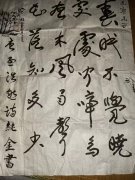 春眠不覺曉
處處聞啼鳥
夜来風雨聲
花落知多少
孟浩然詩